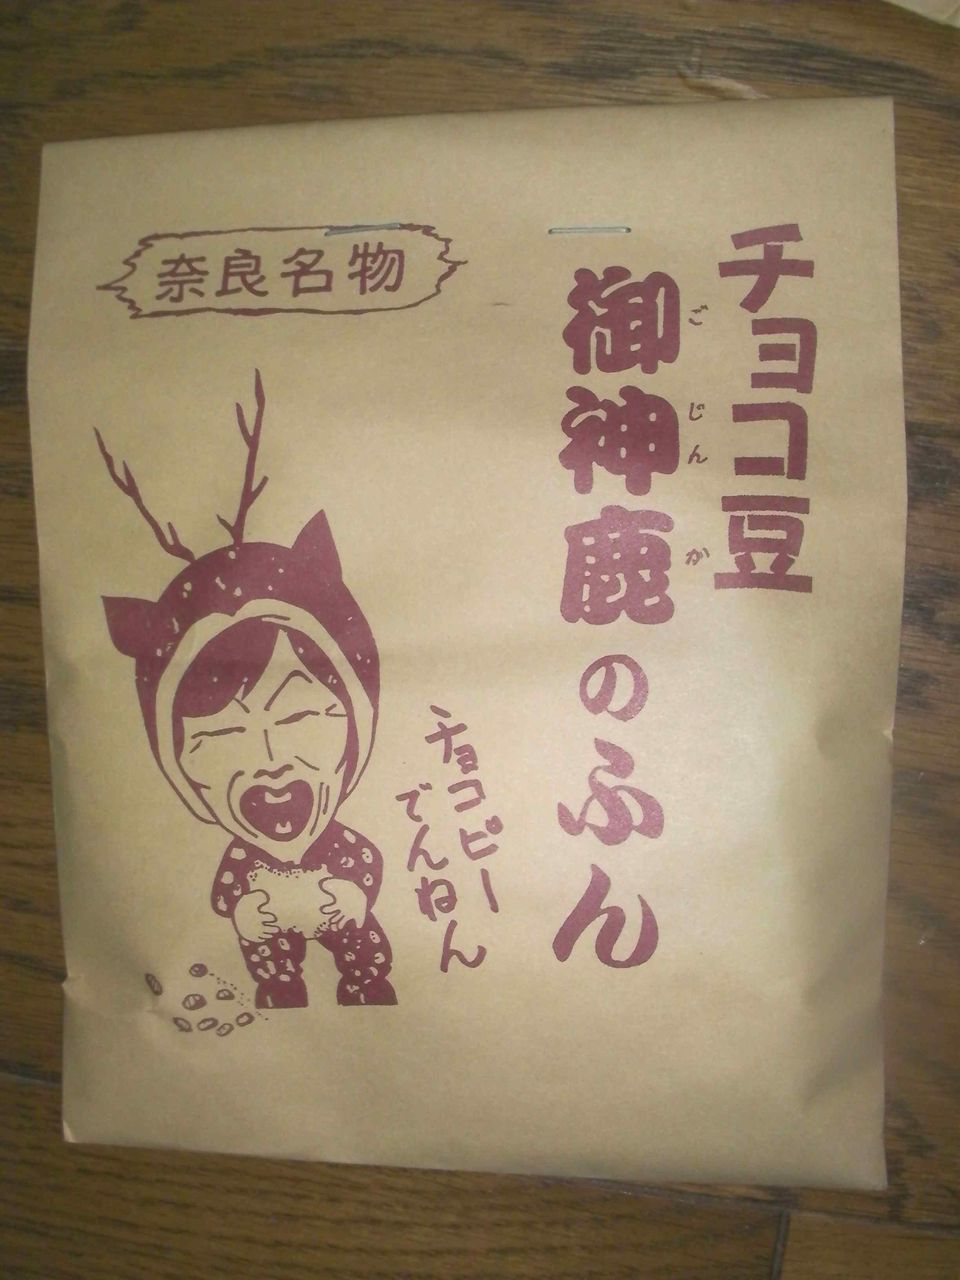 チョコ豆
御神鹿のふん
ごじんか
奈良名物
チョコピー
でんねん